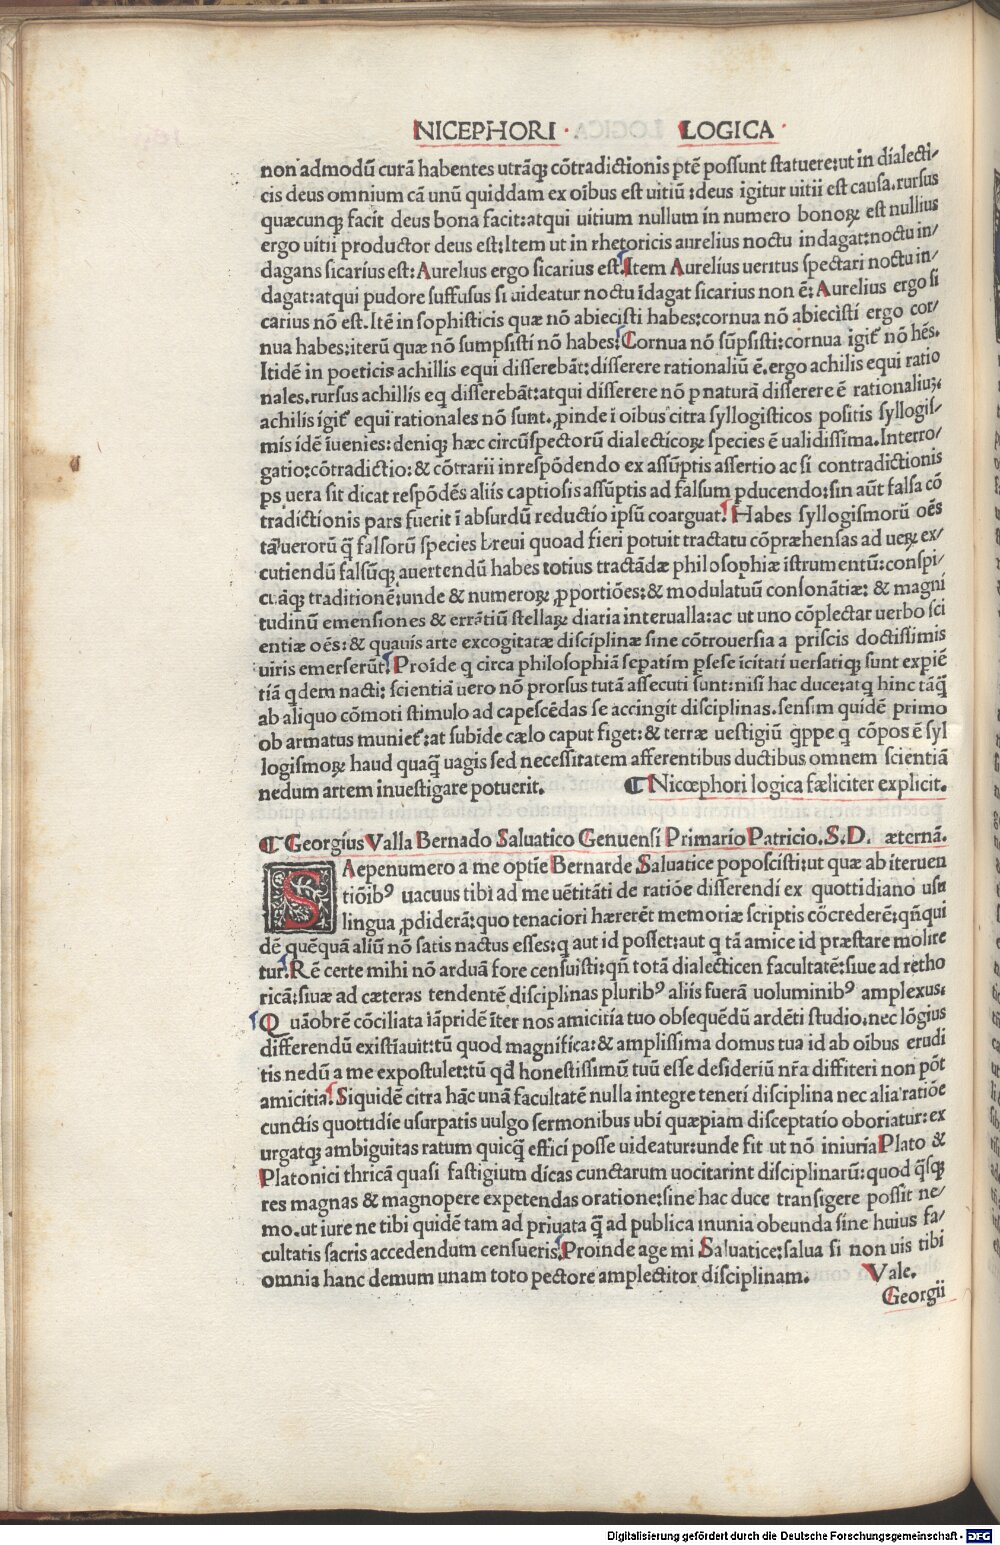 NICEPHORI · LOGICA ·
non admodū curā habentes utrāq; cōtradictionis ptē possunt statuere:ut in dialecti/
cis deus omnium cā unū quiddam ex oībus est uitiū : deus igitur uitii est causa.rursus
quæcunq; facit deus bona facit:atqui uitium nullum in numero bonoꝝ est nullius
ergo uitii productor deus est:Item ut in rhetoricis aurelius noctu indagat:noctu in/
dagans sicarius est: Aurelius ergo sicarius est.Item Aurelius ueritus spectari noctu in/
dagat:atqui pudore suffusus si uideatur noctu īdagat sicarius non ē: Aurelius ergo si
carius nō est.Itē in sophisticis quæ nō abiecisti habes:cornua nō abiecisti ergo cor/
nua habes:iterū quæ nō sumpsisti nō habes:Cornua nō sūpsisti:cornua igit̄ nō hēs.
Itidē in poeticis achillis equi disserebāt:disserere rationaliū ē.ergo achilis equi ratio
nales.rursus achillis eq disserebāt:atqui disserere nō p naturā disserere ē rationaliū:
achilis igit̄ equi rationales nō sunt.ꝓinde ī oībus citra syllogisticos positis syllogis/
mis idē īuenies:deniq; hæc circūspectorū dialecticoꝝ species ē ualidissima.Interro/
gatio:cōtradictio:& cōtrarii in respōdendo ex assūptis assertio ac si contradictionis
ps uera sit dicat respōdēs aliis captiosis assūptis ad falsum pducendo:sin aūt falsa cō
tradictionis pars fuerit ī absurdū reductio ipsū coarguat.Habes syllogismorū oēs
tā uerorū q̄ falsorū species breui quoad fieri potuit tractatu cōpræhensas ad ueꝝ ex/
cutiendū falsūq; auertendū habes totius tractādæ philosophiæ īstrumentū:conspi/
cuāq; traditionē:unde & numeroꝝ ꝓportiōes:& modulatuū consonātiæ: & magni
tudinū emensiones & errātiū stellaꝝ diaria interualla:ac ut uno cōplectar uerbo sci
entiæ oēs:& quauis arte excogitatæ disciplinæ sine cōtrouersia a priscis doctissimis
uiris emerserūt.Proīde q circa philosophiā sepatim psese īcitati uersatiq; sunt expiē
tiā qdem nacti: scientiā uero nō prorsus tutā assecuti sunt:nisi hac duce:atq hinc tāq̄
ab aliquo cōmoti stimulo ad capescēdas se accingit disciplinas.sensim quidē primo
ob armatus muniet̄:at subide cælo caput figet:& terræ uestigiū qppe q cōpos ē syl
logismoꝝ haud quaq̄ uagis sed necessitatem afferentibus ductibus omnem scientiā
nedum artem inuestigare potuerit. ¶ Nicœphori logica fæliciter explicit.
¶ Georgius Valla Bernado Saluatico Genuensi Primario Patricio.S.D. æternā.
SAepenumero a me optīe Bernarde Saluatice poposcisti:ut quæ ab iteruen
tiōibꝰ uacuus tibi ad me uētitāti de ratiōe disserendi ex quottidiano usu
lingua ꝓdiderā:quo tenaciori hærerēt memoriæ scriptis cōcrederē:qn̄qui
dē quēquā aliū nō satis nactus esses:q aut id posset:aut q tā amice id præstare molire
tur.Rē certe mihi nō arduā fore censuisti:qn̄ totā dialecticen facultatē:siue ad retho
ricā:siuæ ad cæteras tendentē disciplinas pluribꝰ aliis fuerā uoluminibꝰ amplexus:
Quāobrē cōciliata iāpridē īter nos amicitia tuo obsequēdū ardēti studio.nec lōgius
differendū existīauit:tū quod magnifica:& amplissima domus tua id ab oībus erudi
tis nedū a me expostulet:tū qd̄ honestissimū tuū esse desideriū nr̄a diffiteri non pōt
amicitia.Siquidē citra hāc unā facultatē nulla integre teneri disciplina nec alia ratiōe
cunctis quottidie usurpatis uulgo sermonibus ubi quæpiam disceptatio oboriatur:ex
urgatq; ambiguitas ratum quicq̄ effici posse uideatur:unde fit ut nō iniuria Plato &
Platonici thricā quasi fastigium dicas cunctarum uocitarint disciplinarū:quod q̄sq;
res magnas & magnopere expetendas oratione:sine hac duce transigere possit ne/
mo.ut iure ne tibi quidē tam ad priuata q̄ ad publica munia obeunda sine huius fa/
cultatis sacris accedendum censueris.Proinde age mi Saluatice:salua si non uis tibi
omnia hanc demum unam toto pectore amplectitor disciplinam. Vale.
Georgii
Digitalisierung gefördert durch die Deutsche Forschungsgemeinschaft - DFG